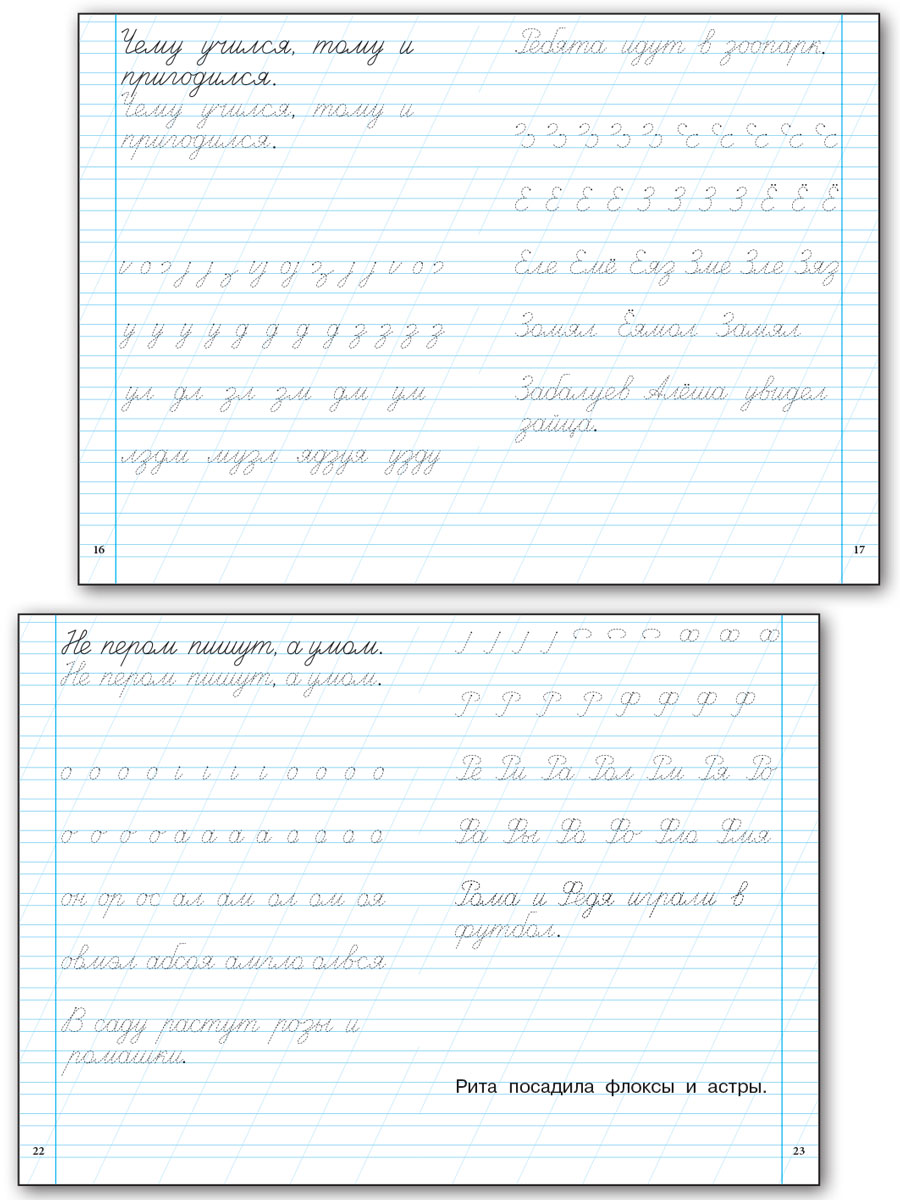 Чему учился, тому и
пригодился.
Чему учился, тому и
пригодился.
у у у у д д д д з з з з
ул дл зл зм дм ум
лздм музл ядзуя узду
16
Ребята идут в зоопарк.
Е Е Е Е З З З З Ё Ё Ё
Еле Емё Еяз Зме Зле Зяз
Зомял Ёямол Замял
Забалуев Алёша увидел
зайца.
17
Не пером пишут, а умом.
Не пером пишут, а умом.
он ор ос ал ам ол ом оя
В саду растут розы и
ромашки.
22
Р Р Р Р Ф Ф Ф Ф
Ре Ри Ра Рол Рм Ря Ро
Фа Фы Фо Фо Фло Фмя
Рома и Федя играли в
футбол.
Рита посадила флоксы и астры.
23